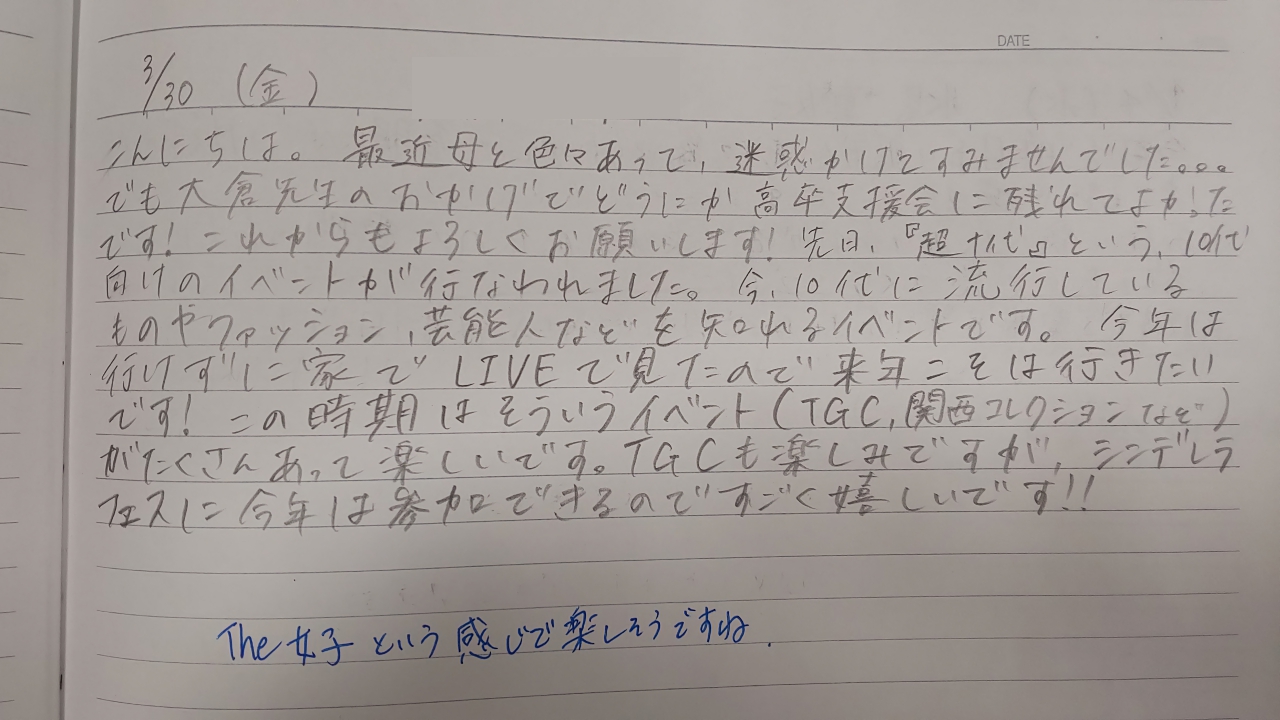 DATE
3/30 (金)
こんにちは。 最近母と色々あって、迷惑かけてすみませんでした。。。
でも大倉先生のおかげでどうにか高卒支援会に残れてよかった
です！これからもよろしくお願いします！先日、『超十代』という、10代
向けのイベントが行なわれました。今、10代に流行している
ものやファッション、芸能人などを知れるイベントです。 今年は
行けずに家でLIVEで見たので来年こそは行きたい
です！この時期はそういうイベント(TGC,関西コレクションなど)
がたくさんあって楽しいです。TGCも楽しみですが、シンデレラ
フェスに今年は参加できるのですごく嬉しいです!!
The 女子という感じで楽しそうですね.